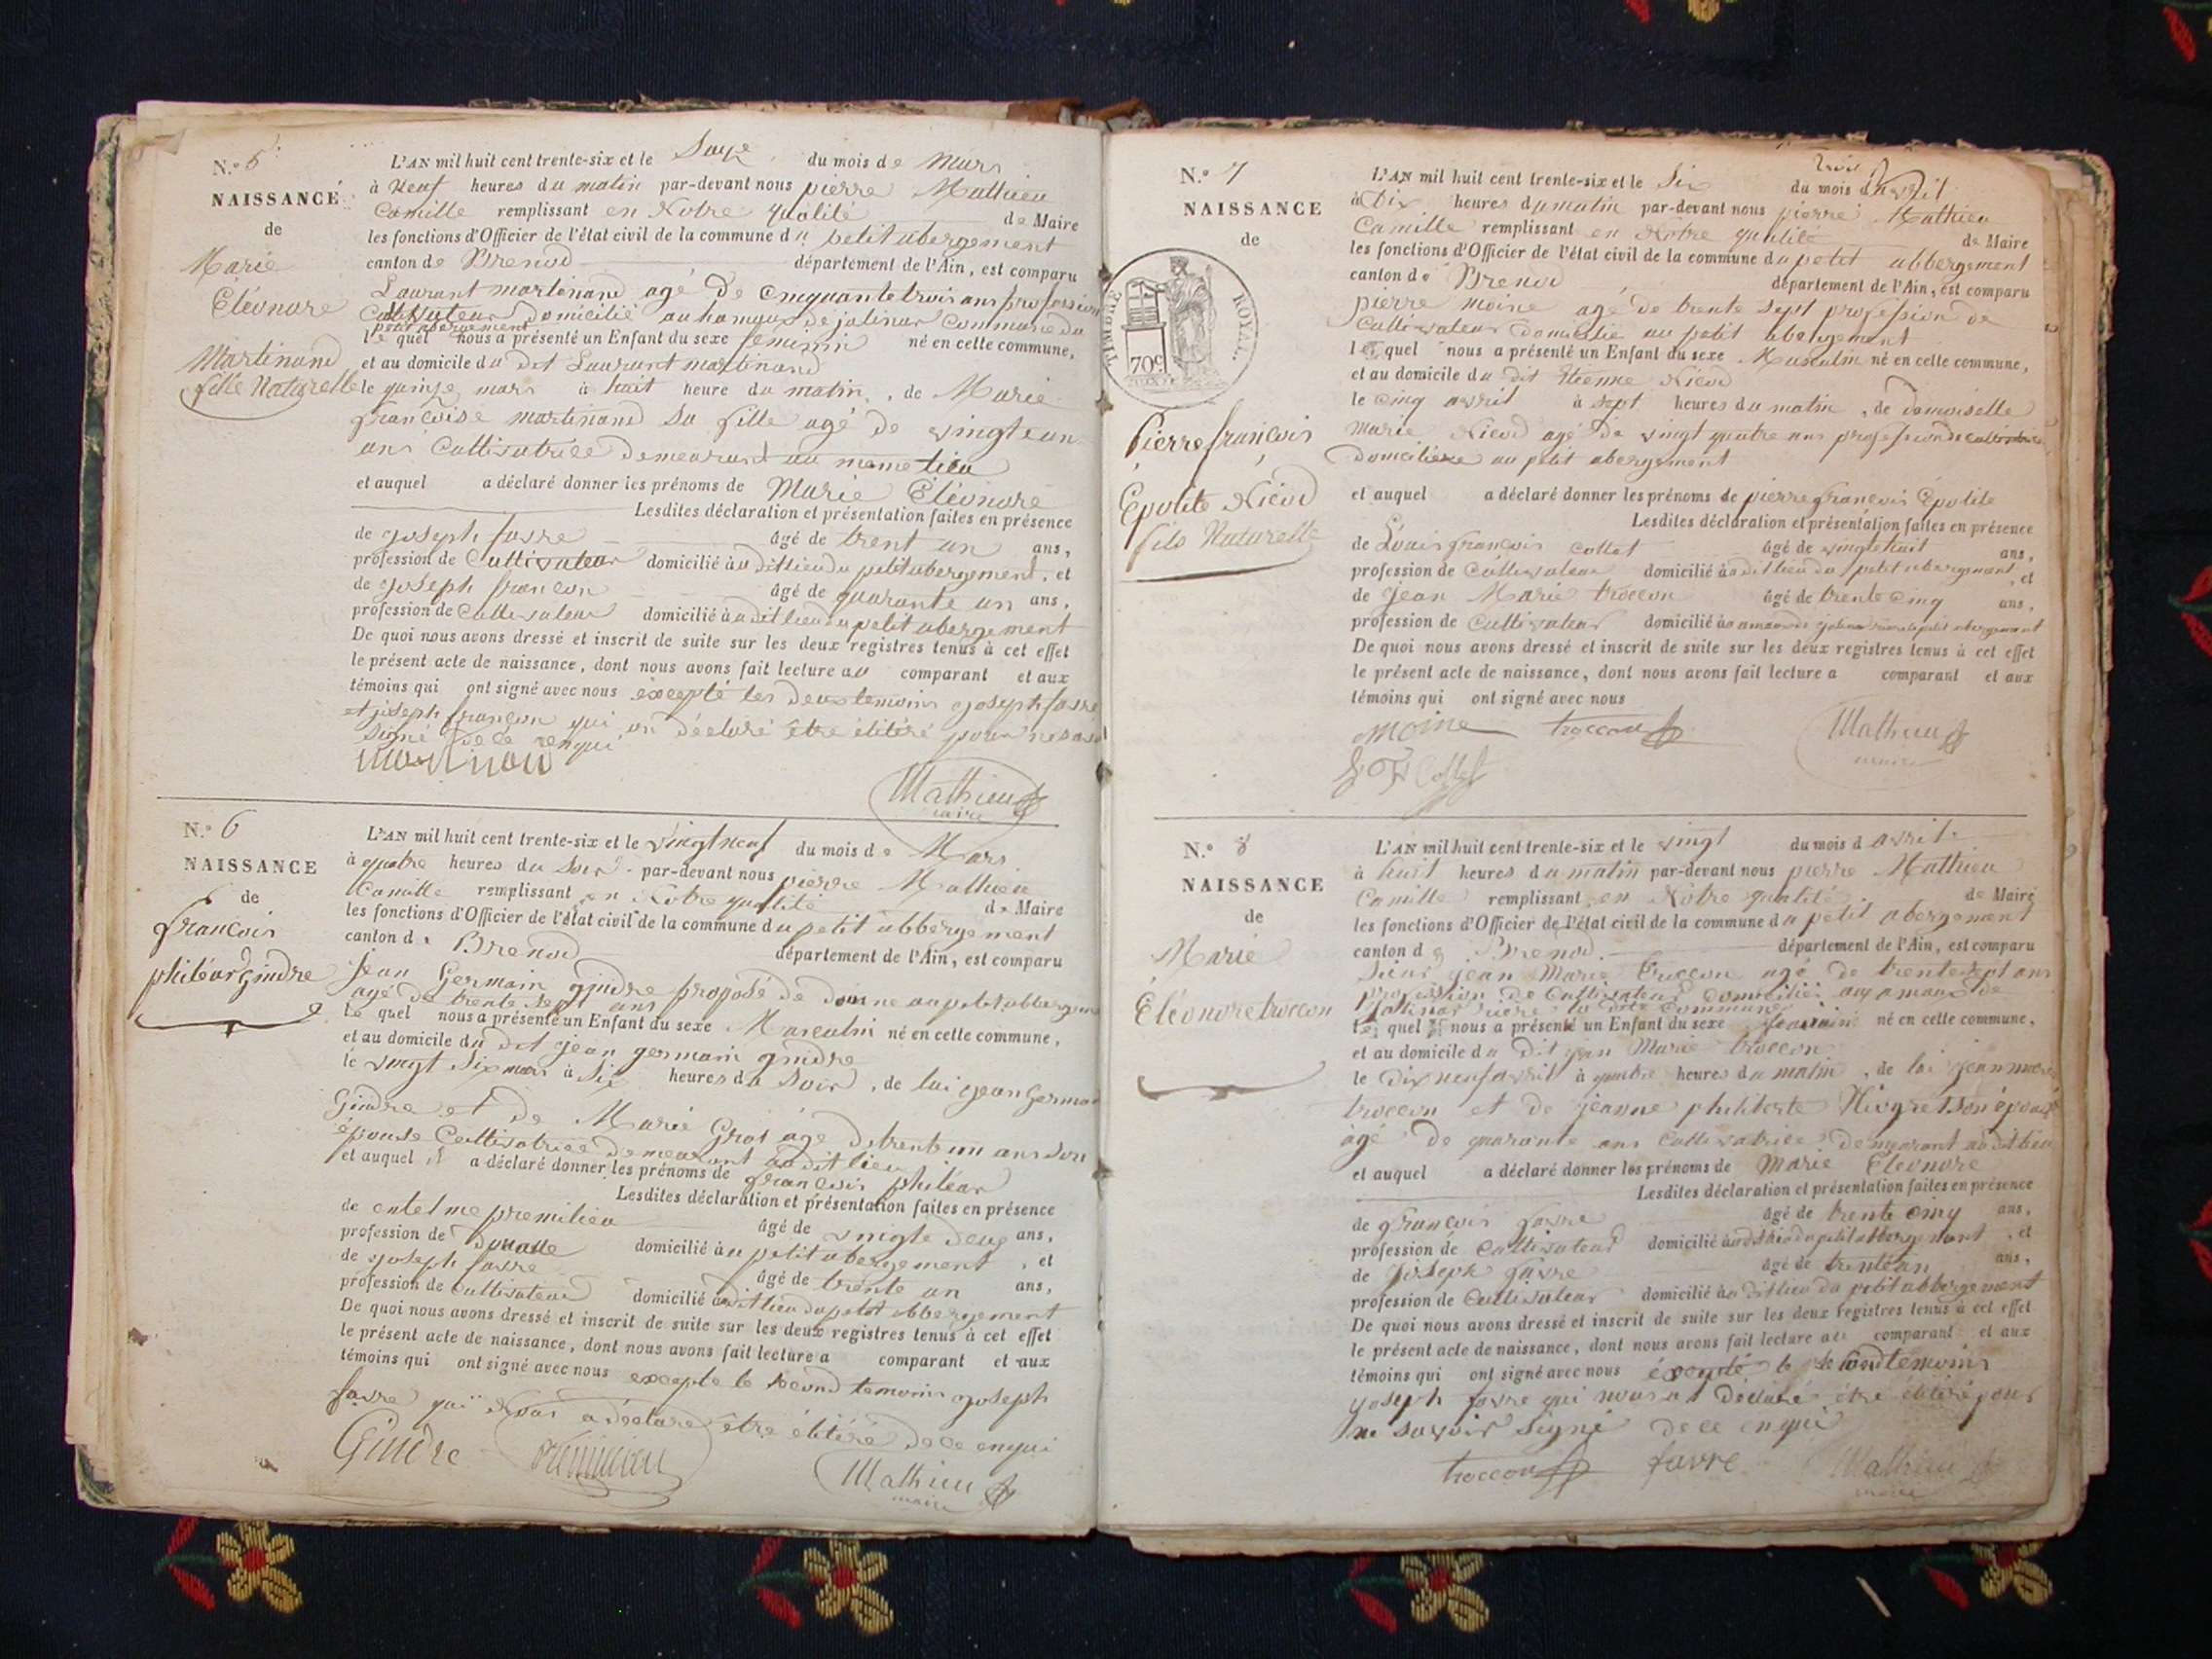 N.° 5
NAISSANCE
de
Marie
Eléonore
Martinand
fille Naturelle
L'AN mil huit cent trente-six et le Saize du mois de Mars
à Neuf heures du matin par-devant nous pierre Mathieu
Camille remplissant en Notre qualité de Maire
les fonctions d'Officier de l'état civil de la commune du petit abergement
canton de Brenod département de l'Ain, est comparu
Laurant martinand agé de cinquante trois ans profession
Cultivateur domicilié au hamaux de jalinar Commune du
petit abergement
le quel nous a présenté un Enfant du sexe feminin né en cette commune,
et au domicile du dit Laurant martinand
le quinze mars à huit heure du matin, de Marie
françoise martinand sa fille agé de vingt un
ans Cultivatrice demeurant au meme lieu
et auquel a déclaré donner les prénoms de Marie Éléonore
Lesdites déclaration et présentation faites en présence
de joseph favre âgé de trent un ans,
profession de Cultivateur domicilié au dit lieu du petit abergement, et
de joseph françon âgé de quarante un ans,
profession de Cultivateur domicilié à udit lieu du petit abergement
De quoi nous avons dressé et inscrit de suite sur les deux registres tenus à cet effet
le présent acte de naissance, dont nous avons fait lecture au comparant et aux
témoins qui ont signé avec nous excepté les deux temoins joseph favre
et joseph françon qui on déclaré être élitéré pour ne savoir
signé de ce enqui
Mathieu
maire
N.° 6
NAISSANCE
de
françois
philéar gindre
L'AN mil huit cent trente-six et le vingt neuf du mois de Mars
à quatre heures du Soir par-devant nous pierre Mathieu
Camille remplissant en Notre qualité de Maire
les fonctions d'Officier de l'état civil de la commune du petit abbergement
canton de Brenod département de l'Ain, est comparu
Jean Germain gindre préposé de douane au petit abbergement
agé de trente sept ans
le quel nous a présenté un Enfant du sexe Masculin né en cette commune,
et au domicile du dit jean germain gindre
le vingt Six mars à Six heures du Soir, de lui jean Germain
Gindre et de Marie Gros agé de trente un ans son
épouse Cultivatrice demeurant audit lieu
et auquel il a déclaré donner les prénoms de françois philéar
Lesdites déclaration et présentation faites en présence
de entelme premilieu âgé de vingte deux ans,
profession de douane domicilié au petit abergement, et
de joseph favre âgé de trente un ans,
profession de cultivateur domicilié audit lieu du petit abbergement
De quoi nous avons dressé et inscrit de suite sur les deux registres tenus à cet effet
le présent acte de naissance, dont nous avons fait lecture a comparant et aux
témoins qui ont signé avec nous excepte le second temoins joseph
favre qui Nous a déclaré être élitéré de ce enqui
Gindre
Mathieu
maire
N.° 7
NAISSANCE
de
TIMBRE ROYAL
70c
Pierre françois
Épolite Niéod
fils Naturelle
L'AN mil huit cent trente-six et le Six du mois d'avril
à Dix heures du matin par-devant nous pierre Mathieu
Camille remplissant en Notre qualité de Maire
les fonctions d'Officier de l'état civil de la commune du petit abbergement
canton de Brenod département de l'Ain, est comparu
pierre moine agé de trente sept profession de
Cultivateur domicilié au petit abergement
le quel nous a présenté un Enfant du sexe Masculin né en cette commune,
et au domicile du dit Etienne Niéod
le cinq avril à sept heures du matin, de domoiselle
marie Niéod agé de vingt quatre ans profession de cultivatrice
domiciliée au petit abergement
et auquel a déclaré donner les prénoms de pierre françois Épolite
Lesdites déclaration et présentation faites en présence
de Louis françois collet âgé de vingt huit ans,
profession de Cultivateur domicilié audit lieu du petit abergement, et
de jean Marie troccon âgé de trente cinq ans,
profession de Cultivateur
De quoi nous avons dressé et inscrit de suite sur les deux registres tenus à cet effet
le présent acte de naissance, dont nous avons fait lecture a comparant et aux
témoins qui ont signé avec nous
moine troccon Mathieu
maire
L F Collet
N.° 8
NAISSANCE
de
Marie
Éléonore troccon
L'AN mil huit cent trente-six et le vingt du mois d avril
à huit heures du matin par-devant nous pierre Mathieu
Camille remplissant en Notre qualité de Maire
les fonctions d'Officier de l'état civil de la commune du petit abergement
canton de Brenod département de l'Ain, est comparu
Sieur jean Marie troccon agé de trente sept ans
profession de Cultivateur domicilié aux amaux de
jalinar rière la dite commune
le quel nous a présenté un Enfant du sexe feminin né en cette commune,
et au domicile du dit jean Marie troccon
le dix neuf avril à quatre heures du matin, de lui jean marie
troccon et de jeanne philiberte Niogret son épouse
âgé de quarante ans Cultivatrice demeurant au dit lieu
et auquel a déclaré donner les prénoms de Marie Éléonore
Lesdites déclaration et présentation faites en présence
de françois favre âgé de trente cinq ans,
profession de Cultivateur domicilié audit lieu du petit abbergement, et
de joseph favre âgé de trente un ans,
profession de Cultivateur domicilié au dit lieu du petit abbergement
De quoi nous avons dressé et inscrit de suite sur les deux registres tenus à cet effet
le présent acte de naissance, dont nous avons fait lecture au comparant et aux
témoins qui ont signé avec nous éxcepté le second temoins
joseph favre qui nous a déclaré être élitéré pour
ne savoir signé de ce enqui
troccon favre Mathieu
maire